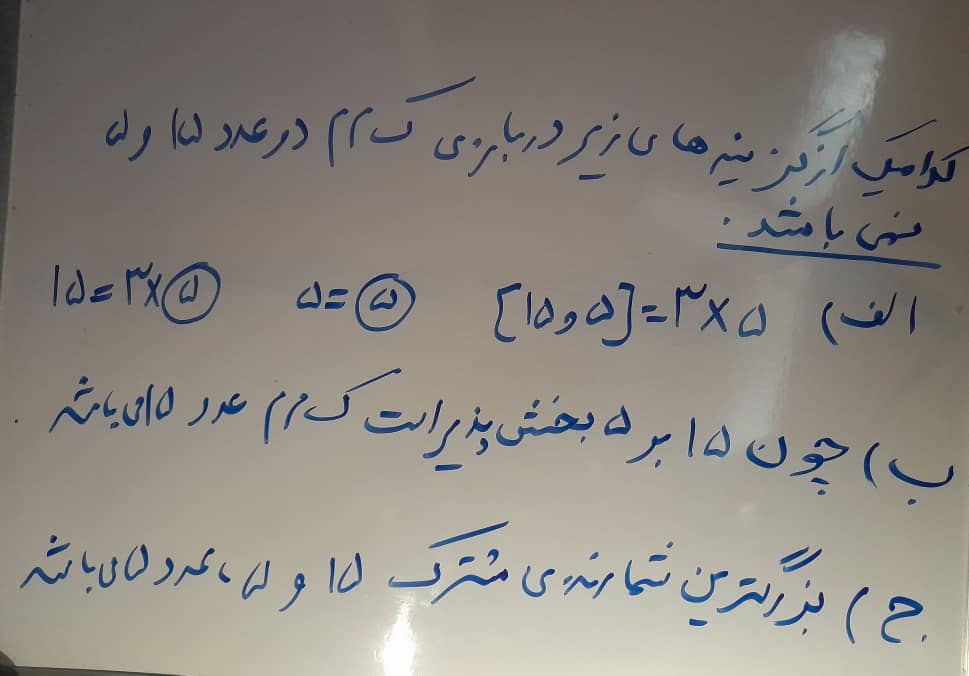 کدامیک از گزینه های زیر درباره ی ک م م دو عدد ۱۵ و ۵
نمی باشد.
الف) [۱۵ و ۵] = ۳ × ۵ ۵ = ۵ ۱۵ = ۳ × ۵
ب) چون ۱۵ بر ۵ بخش پذیر است ک م م عدد ۱۵ می باشد.
ج) بزرگترین شمارنده ی مشترک ۱۵ و ۵، عدد ۵ می باشد